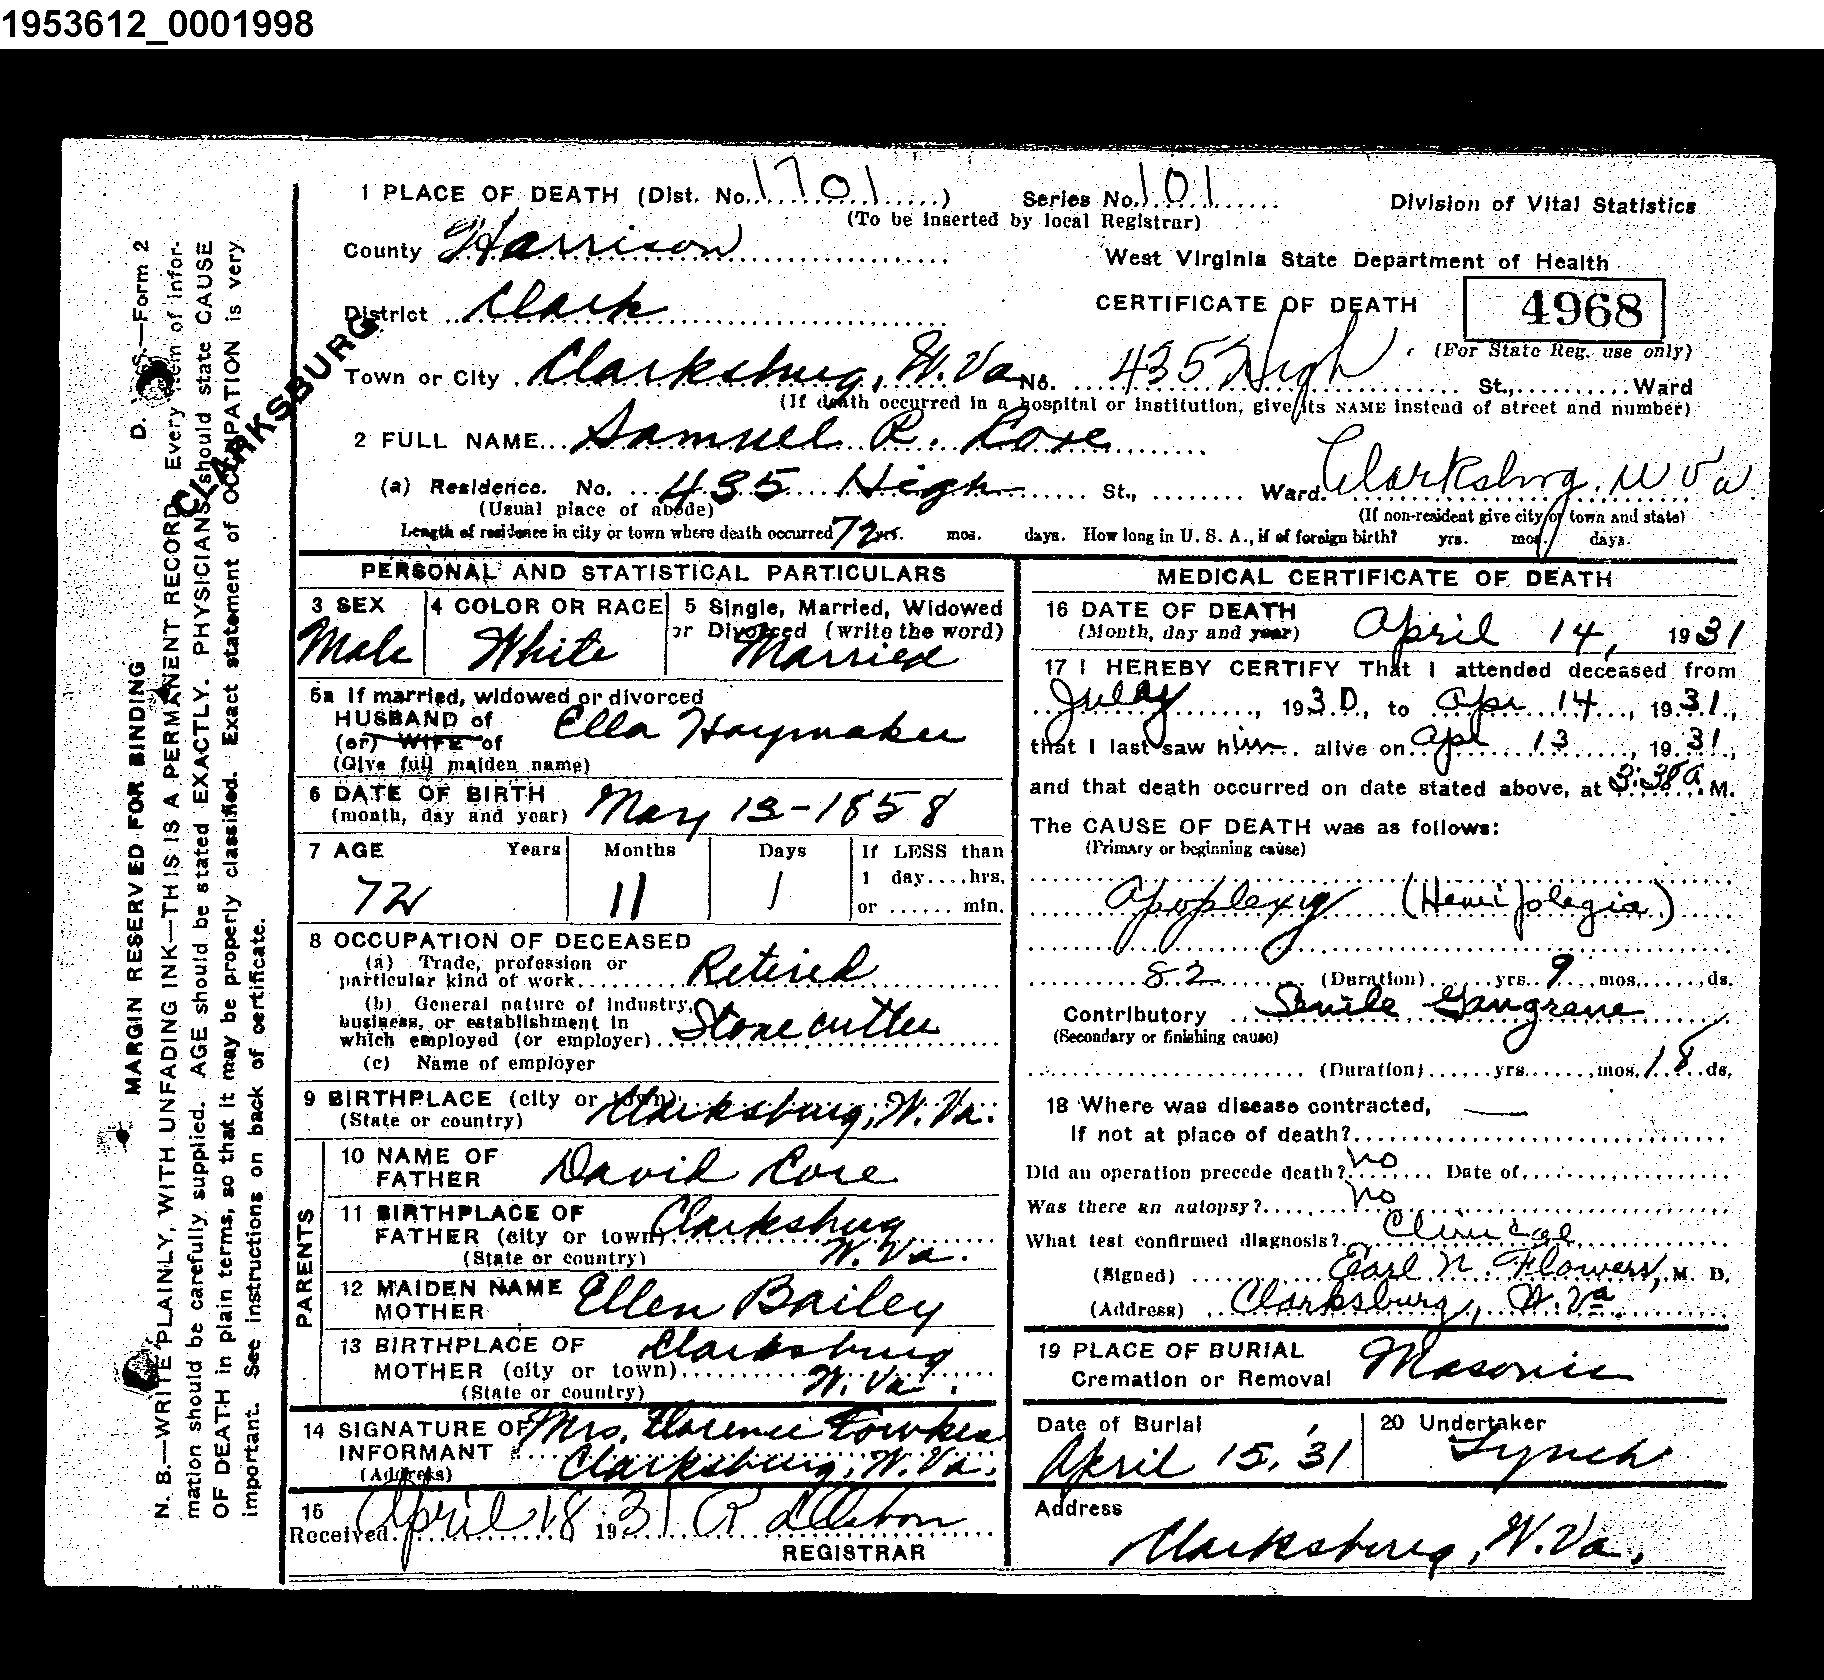 1953612_0001998
1 PLACE OF DEATH (Dist. No. 1701) Series No. 101 Division of Vital Statistics
(To be inserted by local Registrar)
County Harrison
West Virginia State Department of Health
District Clark
CERTIFICATE OF DEATH 4968
(For State Reg. use only)
CLARKSBURG
Town or City Clarksburg, W. Va No. 435 High St., Ward
(If death occurred in a hospital or institution, give its NAME instead of street and number)
2 FULL NAME Samuel R. Cose
(a) Residence. No. 435 High St., Ward. Clarksburg, W Va
(Usual place of abode) (If non-resident give city or town and state)
Length of residence in city or town where death occurred 72 yrs. mos. days. How long in U. S. A., if of foreign birth? yrs. mos. days.
PERSONAL AND STATISTICAL PARTICULARS
3 SEX 4 COLOR OR RACE 5 Single, Married, Widowed
or Divorced (write the word)
Male White Married
5a If married, widowed or divorced
HUSBAND of
(or) WIFE of Ella Haymaker
(Give full maiden name)
6 DATE OF BIRTH
(month, day and year) May 13-1858
7 AGE Years Months Days If LESS than
1 day....hrs.
or ...... min.
72 11 1
8 OCCUPATION OF DECEASED
(a) Trade, profession or
particular kind of work Retired
(b) General nature of industry,
business, or establishment in
which employed (or employer) Stone cutter
(c) Name of employer
9 BIRTHPLACE (city or town) Clarksburg, W. Va.
(State or country)
PARENTS
10 NAME OF
FATHER David Cose
11 BIRTHPLACE OF
FATHER (city or town) Clarksburg
(State or country) W. Va.
12 MAIDEN NAME
MOTHER Ellen Bailey
13 BIRTHPLACE OF
MOTHER (city or town) Clarksburg
(State or country) W. Va.
14 SIGNATURE OF
INFORMANT Mrs. Florence Fowkes
(Address) Clarksburg, W. Va.
15
Received April 18 1931
REGISTRAR
MEDICAL CERTIFICATE OF DEATH
16 DATE OF DEATH
(Month, day and year) April 14, 1931
17 I HEREBY CERTIFY That I attended deceased from
July, 1930, to Apr 14, 1931,
that I last saw him alive on Apl 13, 1931,
and that death occurred on date stated above, at 3:30 a M.
The CAUSE OF DEATH was as follows:
(Primary or beginning cause)
Apoplexy (Hemiplegia)
82 (Duration) yrs. 9 mos. ds.
Contributory Senile Gangrene
(Secondary or finishing cause)
(Duration) yrs. mos. 18 ds.
18 Where was disease contracted,
If not at place of death?
Did an operation precede death? no Date of
Was there an autopsy? no
What test confirmed diagnosis? Clinical
(Signed) Earl N. Flowers, M. D.
(Address) Clarksburg, W. Va
19 PLACE OF BURIAL
Cremation or Removal Masonic
Date of Burial
April 15, '31
20 Undertaker
Lynch
Address
Clarksburg, W. Va.
D. S.—Form 2
MARGIN RESERVED FOR BINDING
N. B.—WRITE PLAINLY, WITH UNFADING INK—THIS IS A PERMANENT RECORD. Every item of infor-
mation should be carefully supplied. AGE should be stated EXACTLY. PHYSICIANS should state CAUSE
OF DEATH in plain terms, so that it may be properly classified. Exact statement of OCCUPATION is very
important. See instructions on back of certificate.